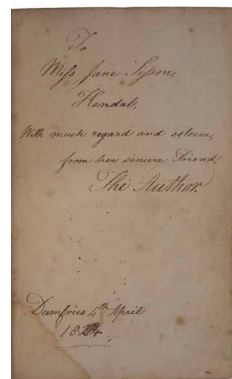 To
Miss Jane Sisson,
Kendal,
With much regard and esteem,
from her sincere Friend
The Author.
Dumfries 4th April
1824